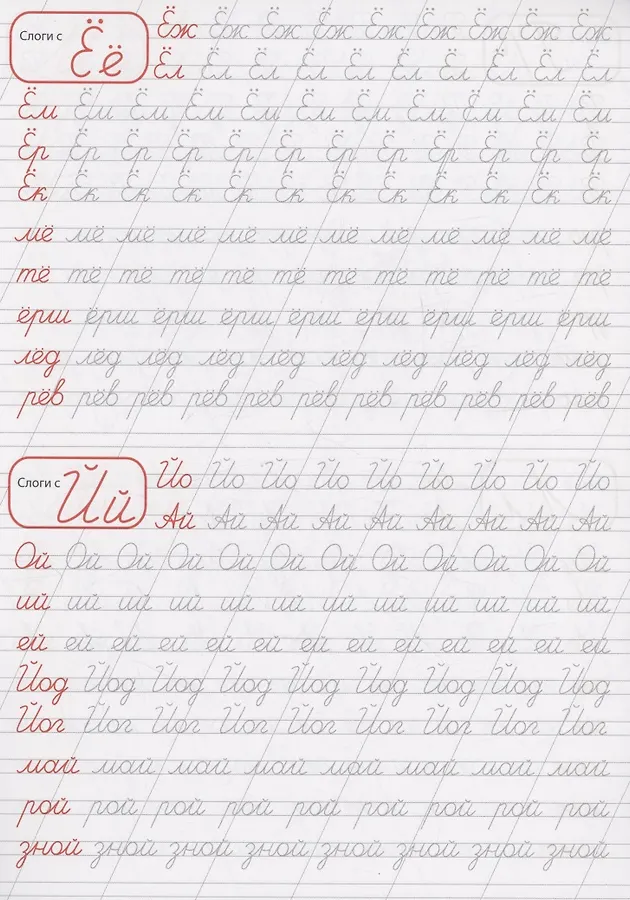 Слоги с Ёё
Ёж Ёж Ёж Ёж Ёж Ёж Ёж Ёж Ёж
Ёл Ёл Ёл Ёл Ёл Ёл Ёл Ёл Ёл Ёл
Ём Ём Ём Ём Ём Ём Ём Ём Ём Ём Ём
Ёр Ёр Ёр Ёр Ёр Ёр Ёр Ёр Ёр Ёр Ёр Ёр
Ёк Ёк Ёк Ёк Ёк Ёк Ёк Ёк Ёк Ёк Ёк Ёк
мё мё мё мё мё мё мё мё мё мё мё мё
тё тё тё тё тё тё тё тё тё тё тё тё
ёрш ёрш ёрш ёрш ёрш ёрш ёрш ёрш ёрш
лёд лёд лёд лёд лёд лёд лёд лёд лёд лёд
рёв рёв рёв рёв рёв рёв рёв рёв рёв рёв рёв
Слоги с Йй
Йо Йо Йо Йо Йо Йо Йо Йо Йо
Ай Ай Ай Ай Ай Ай Ай Ай Ай
Ой Ой Ой Ой Ой Ой Ой Ой Ой Ой Ой Ой
ий ий ий ий ий ий ий ий ий ий ий ий
ей ей ей ей ей ей ей ей ей ей ей ей ей
Йод Йод Йод Йод Йод Йод Йод Йод Йод
Йог Йог Йог Йог Йог Йог Йог Йог Йог
май май май май май май май май
рой рой рой рой рой рой рой рой рой
зной зной зной зной зной зной зной зной